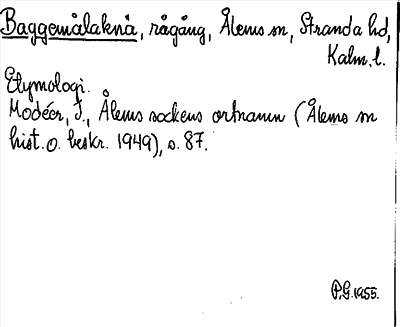 Baggemålaknä, rågång, Ålems sn, Stranda hd,
Kalm. l.
Etymologi.
Modéer, I., Ålems sockens ortnamn (Ålems sn
hist. o. beskr. 1949), s. 87.
P.G. 1955.